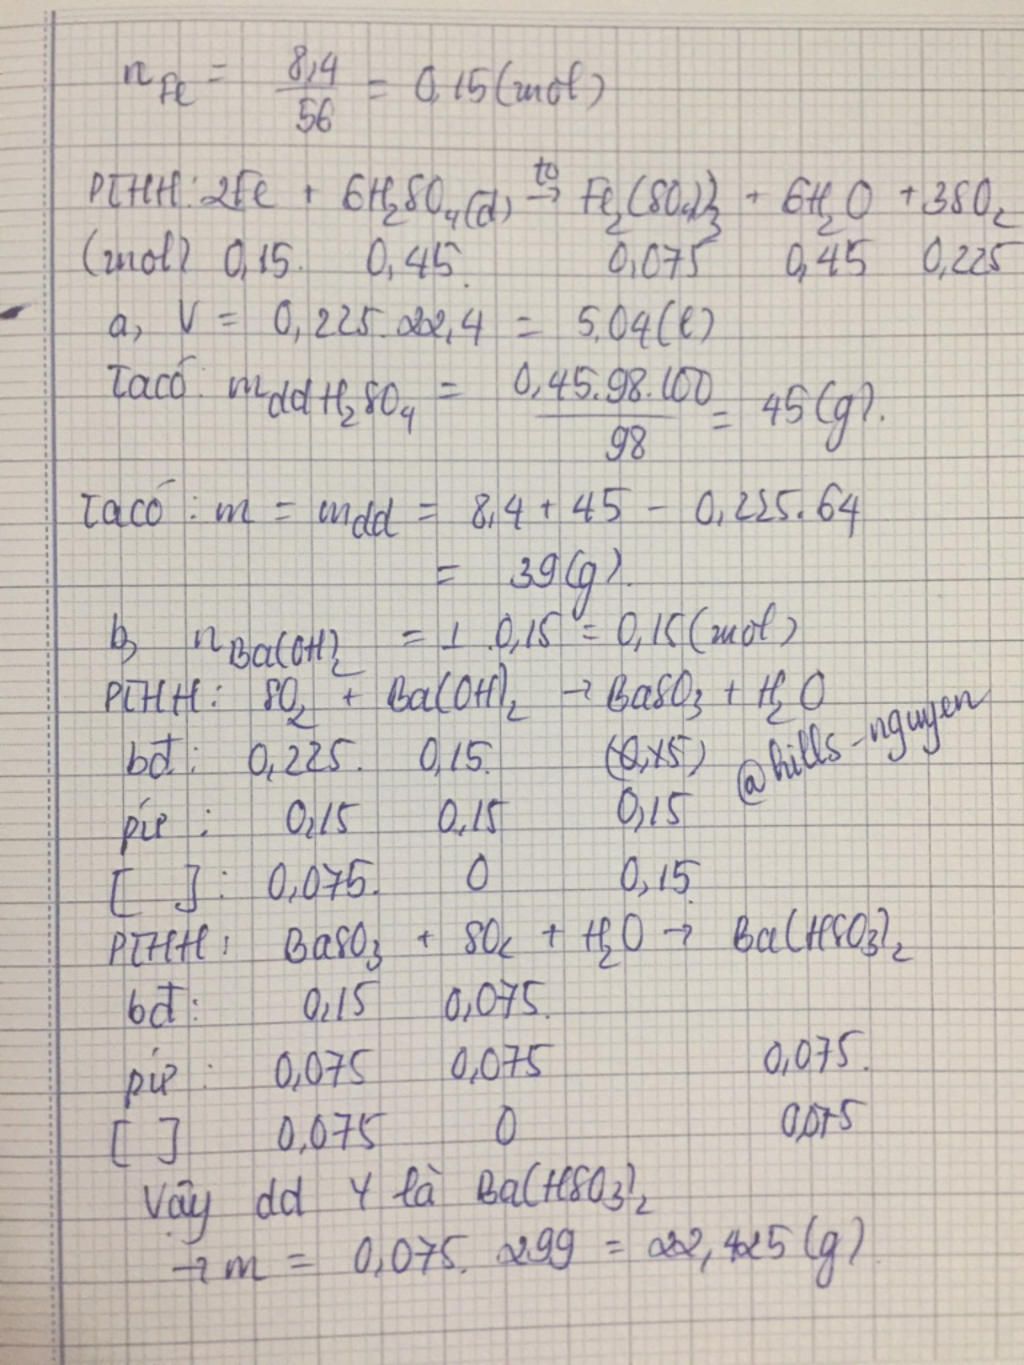 n_Fe = 8,4/56 = 0,15 (mol)
PTHH: 2Fe + 6H₂SO₄(đ) →t° Fe₂(SO₄)₃ + 6H₂O + 3SO₂
(mol) 0,15 0,45 0,075 0,45 0,225
a, V = 0,225.22,4 = 5,04 (l)
Ta có: m_dd H₂SO₄ = 0,45.98.100/98 = 45 (g).
Ta có: m = m_dd = 8,4 + 45 - 0,225.64
= 39 (g).
b, n_Ba(OH)₂ = 1.0,15 = 0,15 (mol)
PTHH: SO₂ + Ba(OH)₂ → BaSO₃ + H₂O
bđ: 0,225. 0,15. (0,15)
@hills-nguyen
pứ: 0,15 0,15 0,15
[ ]: 0,075. 0 0,15
PTHH: BaSO₃ + SO₂ + H₂O → Ba(HSO₃)₂
bđ: 0,15 0,075.
pứ: 0,075 0,075 0,075.
[ ] 0,075 0 0,075
Vậy dd Y là Ba(HSO₃)₂
→ m = 0,075. 299 = 22,425 (g)